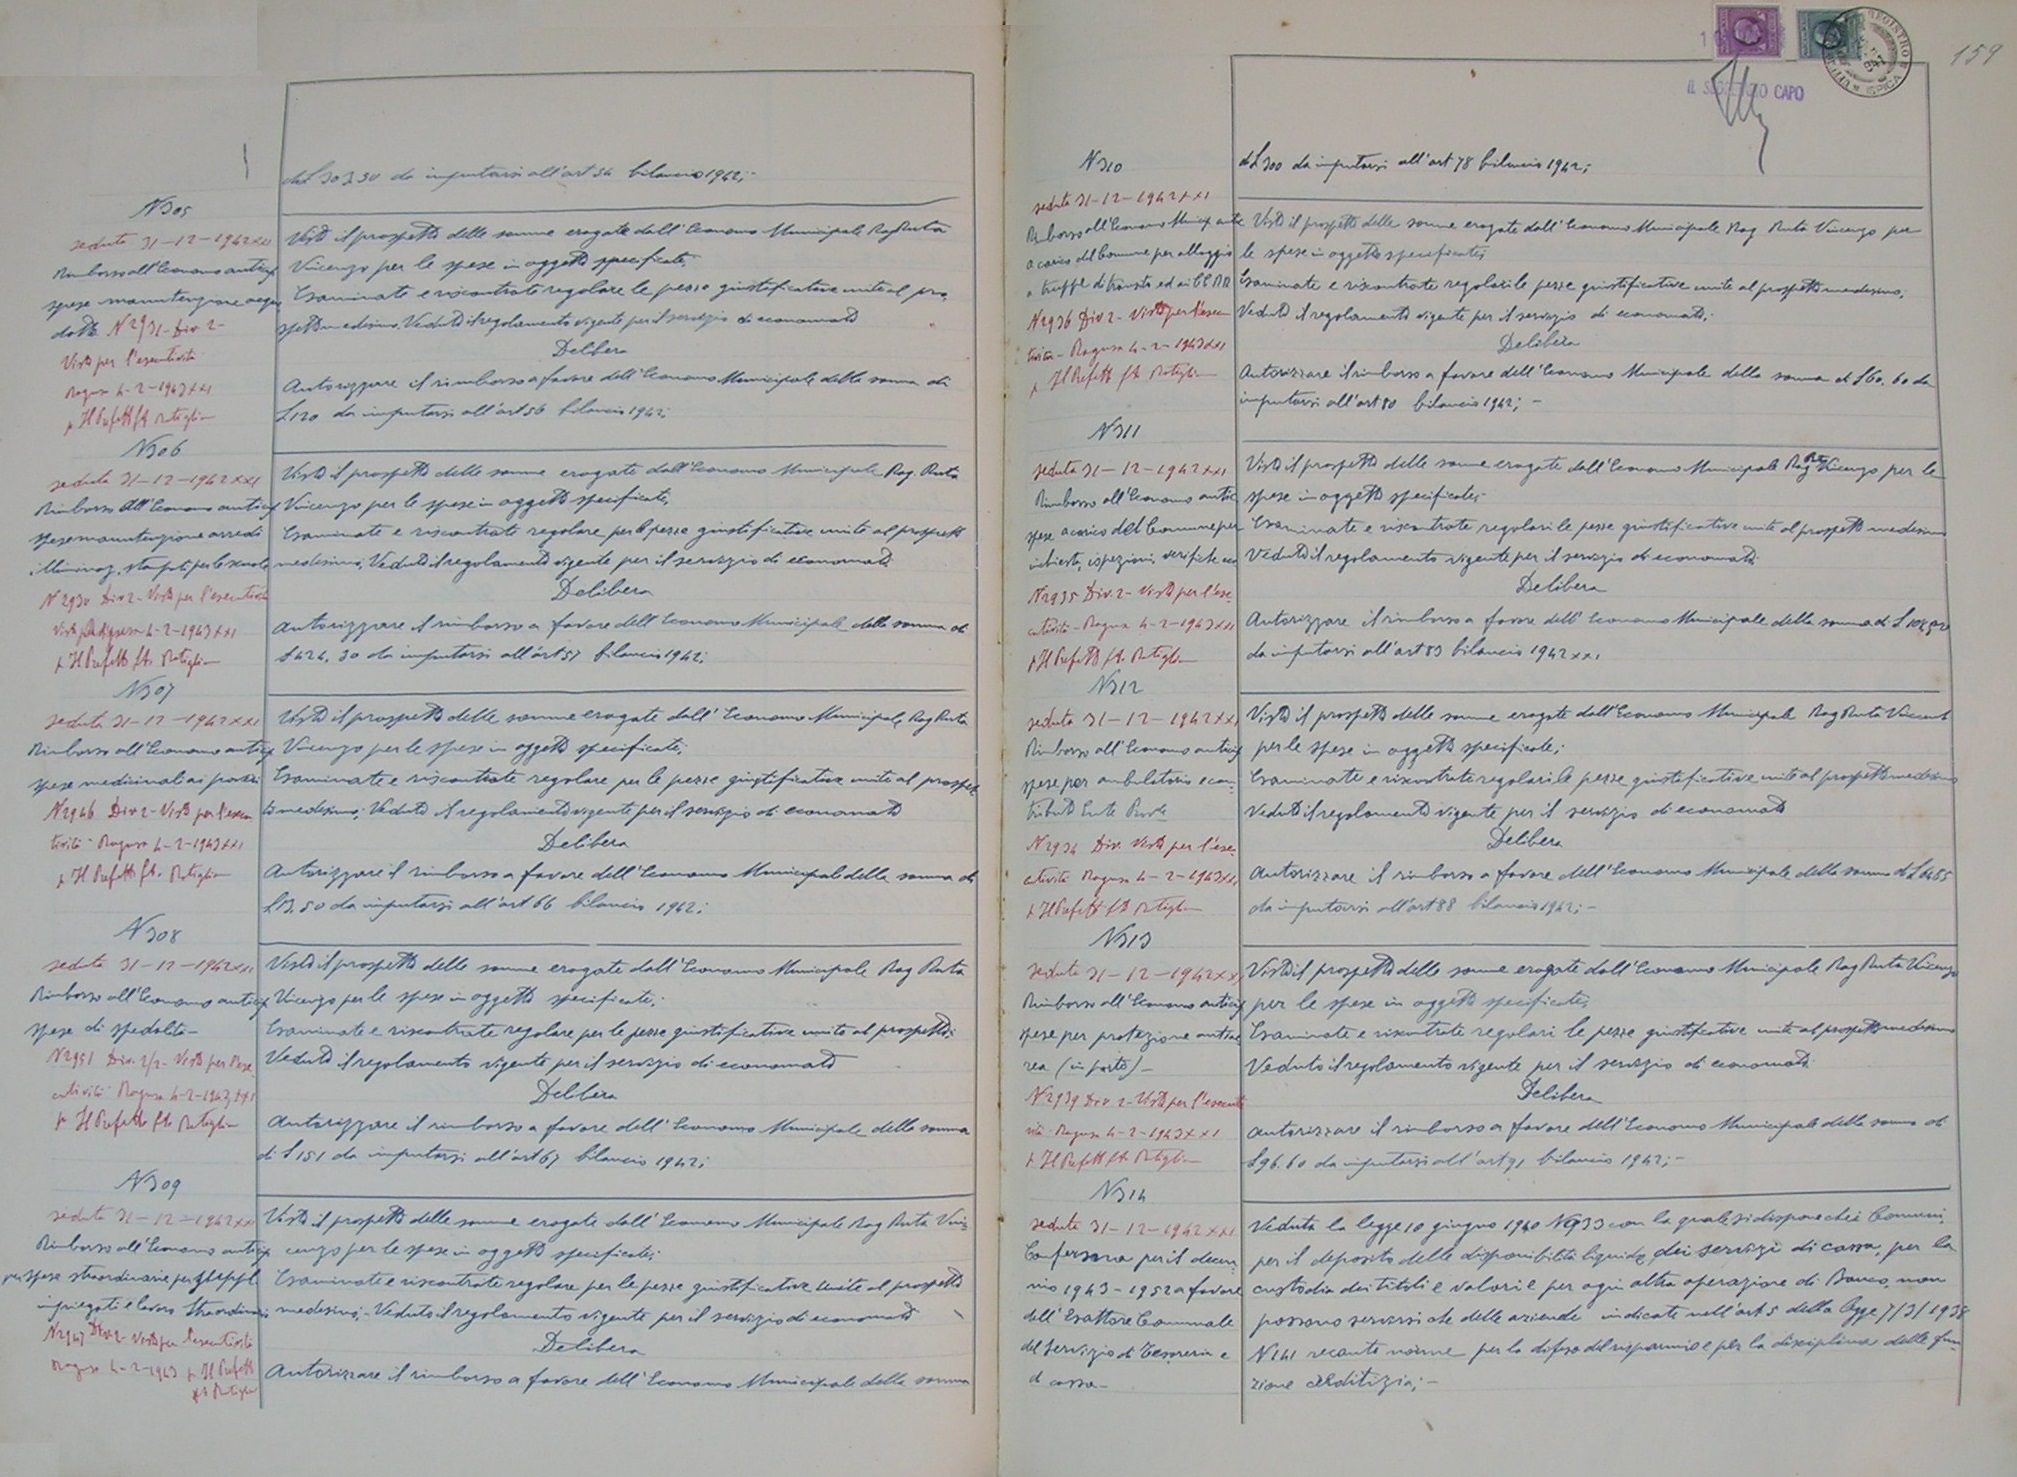 di L 303.50 da imputarsi all'art 54 bilancio 1942;-
N 305
seduta 31-12-1942 XXI
Rimborso all'Economo anticip
spese manutenzione acque
dotto N 2931-Div 2-
Visto per l'esecutività
Ragusa 4-2-1943 XXI
p Il Prefetto ft
Visto il prospetto delle somme erogate dall'Economo Municipale Rag Ruta
Vincenzo per le spese in oggetto specificate;
Esaminate e riscontrate regolare le pezze giustificative unite al pro
spetto medesimo. Veduto il regolamento vigente per il servizio di economato
Delibera
Autorizzare il rimborso a favore dell'Economo Municipale della somma di
L 120 da imputarsi all'art 56 bilancio 1942;
N 306
seduta 31-12-1942 XXI
Rimborso all'Economo anticip
spese manutenzione arredi
illuminaz. stampati per le scuole
N 2930 Div 2-Visto per l'esecutività
4-2-1943 XXI
p Il Prefetto ft.
Visto il prospetto delle somme erogate dall'Economo Municipale Rag. Ruta
Vincenzo per le spese in oggetto specificate;
Esaminate e riscontrate regolare per le pezze giustificative unite al prospetto
medesimo. Veduto il regolamento vigente per il servizio di economato
Delibera
Autorizzare il rimborso a favore dell'Economo Municipale della somma di
L 424,30 da imputarsi all'art 57 bilancio 1942;
N 307
seduta 31-12-1942 XXI
Rimborso all'Economo anticip
spese medicinali ai poveri
N 2946 Div 2-Visto per l'esecu
tività-Ragusa 4-2-1943 XXI
p Il Prefetto ft.
Visto il prospetto delle somme erogate dall'Economo Municipale Rag Ruta
Vincenzo per le spese in oggetto specificate;
Esaminate e riscontrate regolare per le pezze giustificative unite al prospet
to medesimo; Veduto il regolamento vigente per il servizio di economato
Delibera
Autorizzare il rimborso a favore dell'Economo Municipal della somma di
L 3.50 da imputarsi all'art 66 bilancio 1942;
N 308
seduta 31-12-1942 XXI
Rimborso all'Economo anticip
spese di spedalità-
N 2951 Div. 2/2-Visto per l'ese
cutività-Ragusa 4-2-1943 XXI
p Il Prefetto ft
Visto il prospetto delle somme erogate dall'Economo Municipale Rag Ruta
Vincenzo per le spese in oggetto specificate;
Esaminate e riscontrate regolare per le pezze giustificative unite al prospetto;
Veduto il regolamento vigente per il servizio di economato
Delibera
Autorizzare il rimborso a favore dell'Economo Municipale della somma
di L 151 da imputarsi all'art 67 bilancio 1942;
N 309
seduta 31-12-1942 XXI
Rimborso all'Economo anticip
per spese straordinarie per gli
impiegati e lavoro straordinario
N 2947 Div 2-Visto per l'esecutività
Ragusa 4-2-1943 p Il Prefetto
ft
Visto il prospetto delle somme erogate dall'Economo Municipale Rag Ruta Vin
cenzo per le spese in oggetto specificate;
Esaminate e riscontrate regolare per le pezze giustificative unite al prospetto
medesimo;-Veduto il regolamento vigente per il servizio di economato
Delibera
Autorizzare il rimborso a favore dell'Economo Municipale della somma
159
IL SEGRETARIO CAPO
REGISTRO
ISPICA
di L 300 da imputarsi all'art 78 bilancio 1942;
N 310
seduta 31-12-1942 XXI
Rimborso all'Economo Municip antic
a carico del Comune per alloggio
a truppe di transito ed ai CC RR
N 2936 Div 2-Visto per l'esecu
tività-Ragusa 4-2-1943 XXI
p Il Prefetto ft
Visto il prospetto delle somme erogate dall'Economo Municipale Rag Ruta Vincenzo per
le spese in oggetto specificate;
Esaminate e riscontrate regolari le pezze giustificative unite al prospetto medesimo;
Veduto il regolamento vigente per il servizio di economato;
Delibera
Autorizzare il rimborso a favore dell'Economo Municipale della somma di L 60.60 da
imputarsi all'art 80 bilancio 1942;-
N 311
seduta 31-12-1942 XXI
Rimborso all'Economo antic
spese a carico del Comune per
inchieste, ispezioni, verifiche ecc
N 2935 Div.2-Visto per l'ese-
cutività-Ragusa 4-2-1943 XXI
p Il Prefetto ft.
Visto il prospetto delle somme erogate dall'Economo Municipale Rag Ruta Vincenzo per le
spese in oggetto specificate;
Esaminate e riscontrate regolari le pezze giustificative unite al prospetto medesimo
Veduto il regolamento vigente per il servizio di economato
Delibera
Autorizzare il rimborso a favore dell'Economo Municipale della somma di L
da imputarsi all'art 83 bilancio 1942 XXI
N 312
seduta 31-12-1942 XXI
Rimborso all'Economo anticip
spese per ambulatorio e con-
tributo Ente
N 2934 Div. Visto per l'ese-
cutività Ragusa 4-2-1943 XXI
p Il Prefetto ft
Visto il prospetto delle somme erogate dall'Economo Municipale Rag Ruta Vincent
per le spese in oggetto specificate;
Esaminate e riscontrate regolari le pezze giustificative unite al prospetto medesimo
Veduto il regolamento vigente per il servizio di economato
Delibera
Autorizzare il rimborso a favore dell'Economo Municipale della somma di L
da imputarsi all'art 88 bilancio 1942;-
N 313
seduta 31-12-1942 XXI
Rimborso all'Economo anticip
spese per protezione antiae
rea (in parte)-
N 2939 Div 2-Visto per l'esecuti
vità-Ragusa 4-2-1943 XXI
p Il Prefetto ft
Visto il prospetto delle somme erogate dall'Economo Municipale Rag Ruta Vincenzo
per le spese in oggetto specificate;
Esaminate e riscontrate regolari le pezze giustificative unite al prospetto medesimo
Veduto il regolamento vigente per il servizio di economato
Delibera
Autorizzare il rimborso a favore dell'Economo Municipale della somma di
L 96.60 da imputarsi all'art 91 bilancio 1942;-
N 314
seduta 31-12-1942 XXI
Conferma per il decen
nio 1943-1952 a favore
dell'Esattore Comunale
del Servizio di Tesoreria e
di cassa-
Veduta la legge 10 giugno 1940 N 933 con la quale si dispone che i Comuni,
per il deposito delle disponibilità liquide, dei servizi di cassa, per la
custodia dei titoli e valori e per ogni altra operazione di Banca, non
possono servirsi che delle aziende indicate nell'art 5 della legge 7/3/1938
N 141 recante norme per la difesa del risparmio e per la disciplina della fun
zione creditizia;-